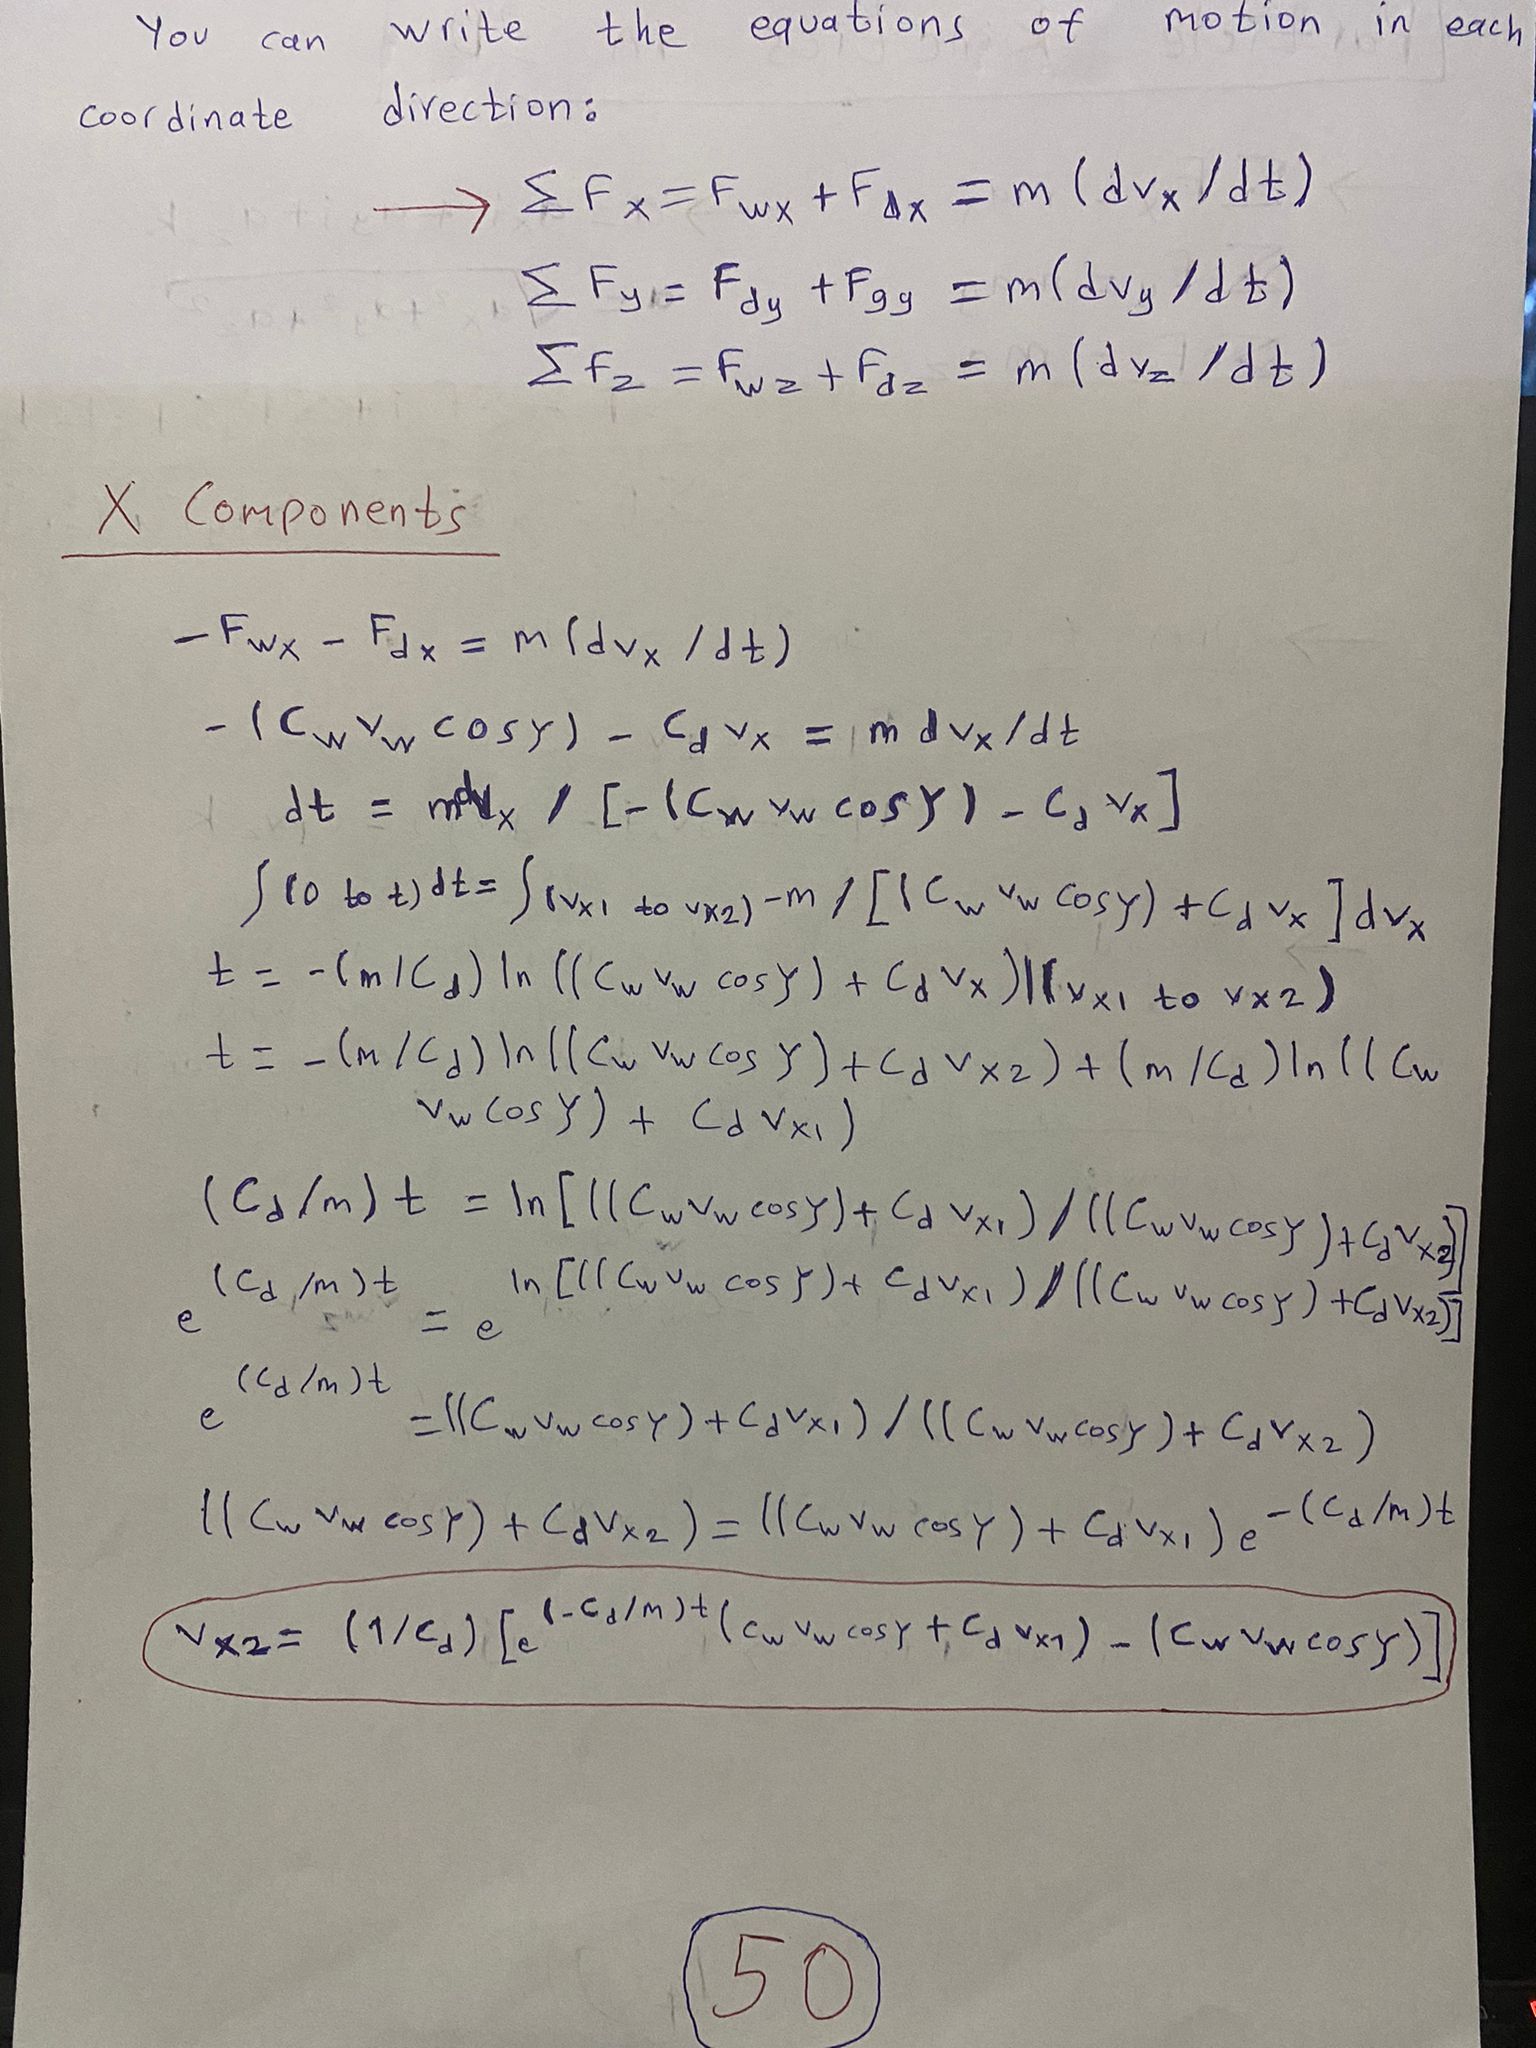 You can write the equations of motion in each
coordinate direction:
→ ΣFx = Fwx + Fdx = m (dvx/dt)
ΣFy = Fdy + Fgy = m(dvy/dt)
ΣFz = Fwz + Fdz = m (dvz/dt)
X Components
-Fwx - Fdx = m (dvx/dt)
-(Cw vw cosγ) - Cd vx = m dvx/dt
dt = mdvx / [-(Cw vw cosγ) - Cd vx]
∫(0 to t) dt = ∫(vx1 to vx2) -m / [(Cw vw cosγ) + Cd vx] dvx
t = -(m/Cd) ln ((Cw vw cosγ) + Cd vx)|(vx1 to vx2)
t = -(m/Cd) ln((Cw vw cosγ) + Cd vx2) + (m/Cd) ln((Cw
vw cosγ) + Cd vx1)
(Cd/m) t = ln[((Cw vw cosγ) + Cd vx1) / ((Cw vw cosγ) + Cd vx2)]
e^(Cd/m)t = e^ln[((Cw vw cosγ) + Cd vx1) / ((Cw vw cosγ) + Cd vx2)]
e^(Cd/m)t = ((Cw vw cosγ) + Cd vx1) / ((Cw vw cosγ) + Cd vx2)
((Cw vw cosγ) + Cd vx2) = ((Cw vw cosγ) + Cd vx1) e^-(Cd/m)t
vx2 = (1/Cd) [e^(-Cd/m)t (Cw vw cosγ + Cd vx1) - (Cw vw cosγ)]
50